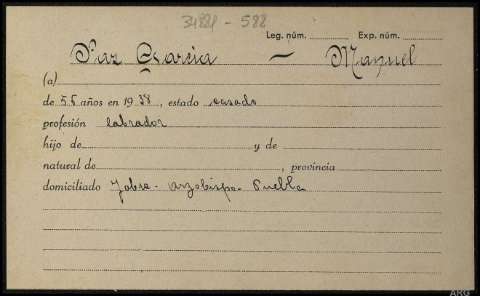 588
Leg. núm. Exp. núm.
Paz Garcia — Manuel
(a)
de 58 años en 1938, estado casado
profesión labrador
hijo de y de
natural de , provincia
domiciliado Jobra. Arzobispo. Puebla
ARG